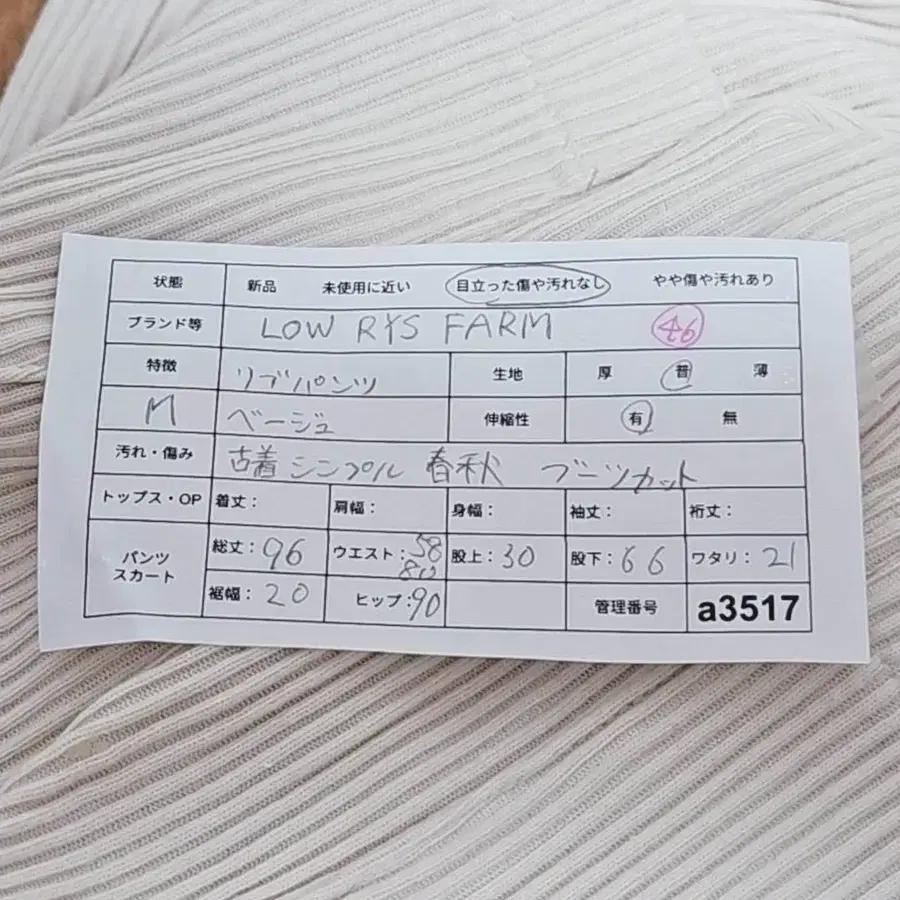 状態 新品 未使用に近い 目立った傷や汚れなし やや傷や汚れあり
ブランド等 LOW RYS FARM 46
特徴 リブパンツ 生地 厚 普 薄
M ベージュ 伸縮性 有 無
汚れ・傷み 古着 シンプル 春秋 ブーツカット
トップス・OP 着丈: 肩幅: 身幅: 袖丈: 裄丈:
パンツ スカート 総丈:96 ウエスト:58 80 股上:30 股下:66 ワタリ:21
裾幅:20 ヒップ:90 管理番号 a3517